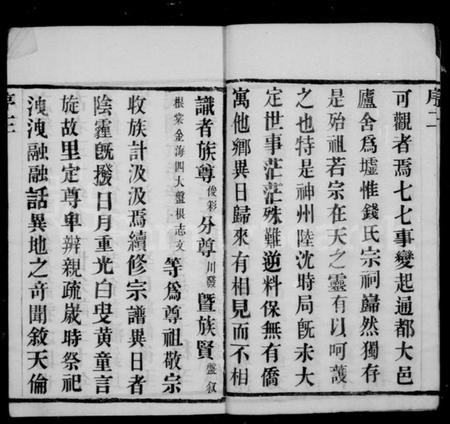 序二
可觀者焉七七事變起通都大邑
廬舍爲墟惟錢氏宗祠巋然獨存
是殆祖若宗在天之靈有以呵護
之也特是神州陸沈時局旣未大
定世事茫茫殊難逆料保無有僑
寓他鄉異日歸來有相見而不相
識者族尊俊彩分尊川發曁族賢盤叙
根棠金海四大盤根志文等爲尊祖敬宗
收族計汲汲焉續修宗譜異日者
陰霾旣撥日月重光白叟黃童言
旋故里定尊卑辨親疏歲時祭祀
洩洩融融話異地之奇聞敘天倫
序三